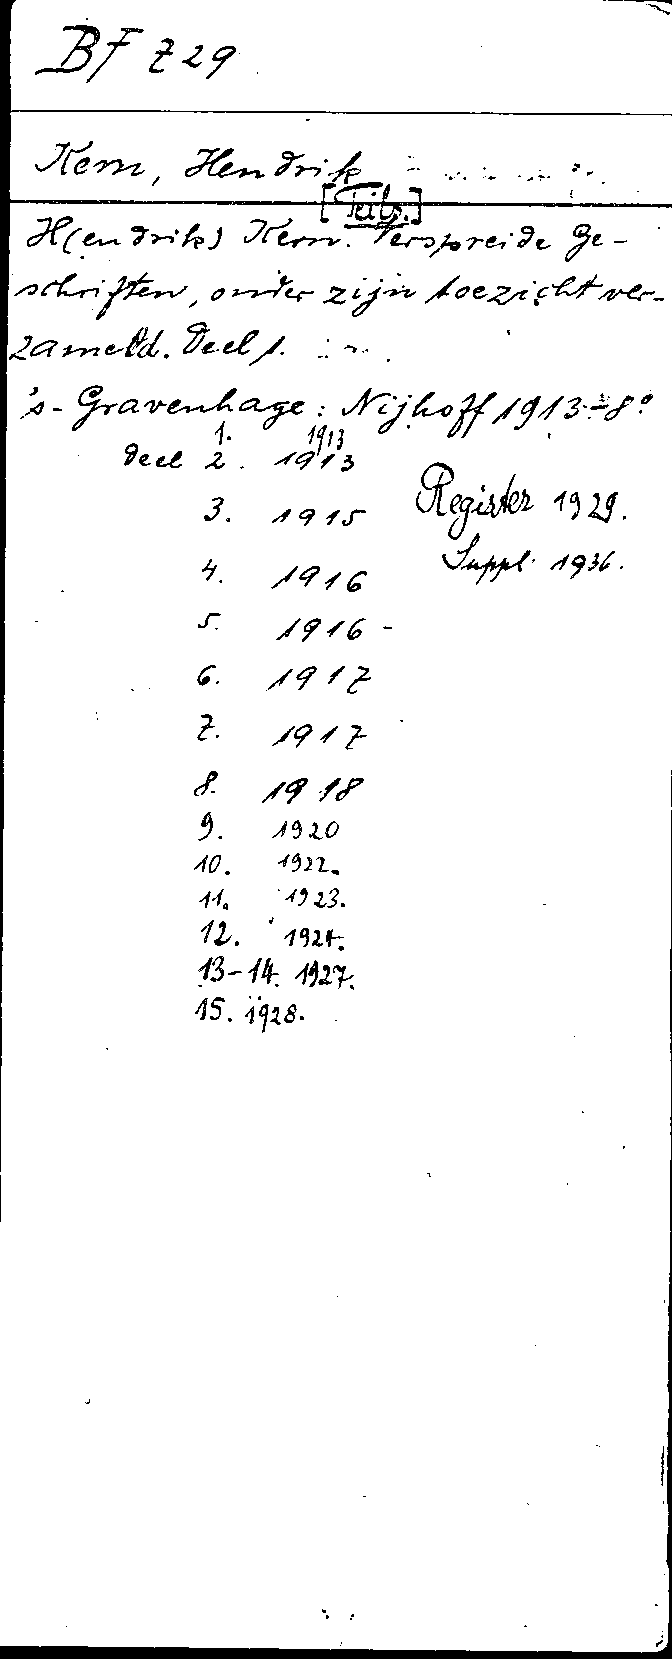 BF 729
Kern, Hendrik
[Teils.]
H(endrik) Kern. Verspreide Ge-
schriften, onder zijn toezicht ver-
zameld. Deel 1.
's-Gravenhage: Nijhoff 1913- 8°
1. 1913
Deel 2. 1913
3. 1915
Register 1929.
4. 1916
Suppl. 1936.
5. 1916-
6. 1917
7. 1917
8. 1918
9. 1920
10. 1922.
11. 1923.
12. 1924.
13-14. 1927.
15. 1928.